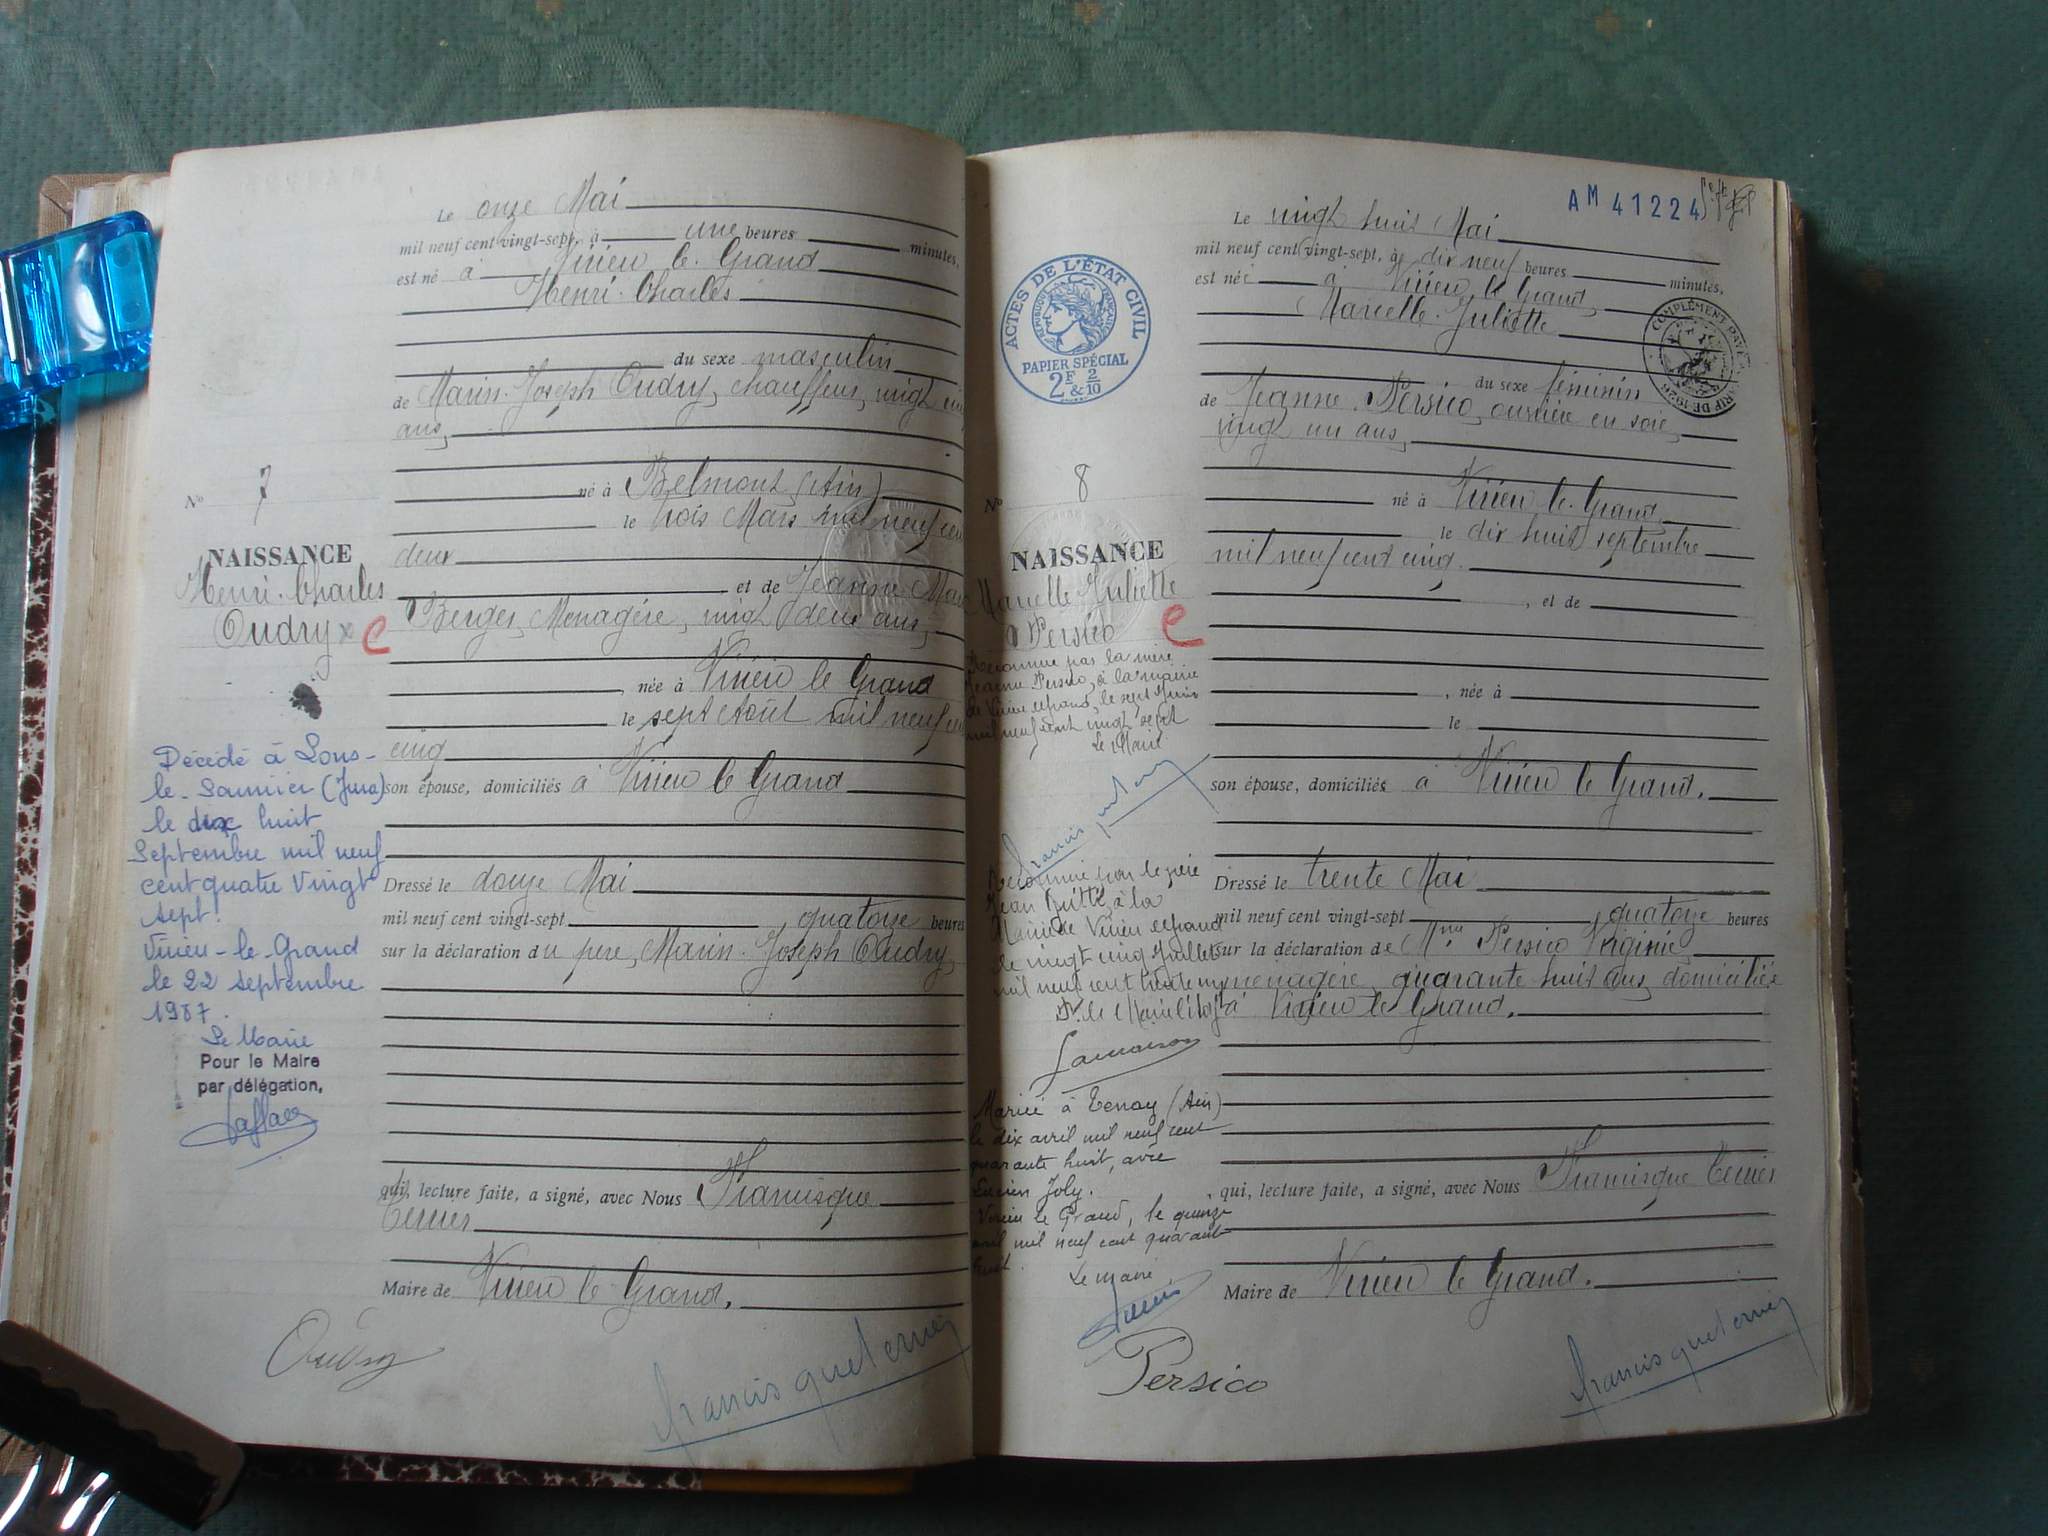 Le onze Mai
mil neuf cent vingt-sept, à une heures minutes,
est né à Virieu le Grand
Henri-Charles
du sexe masculin
de Marin-Joseph Oudry, chauffeur, vingt cinq
ans,
né à Belmont (Ain)
le trois Mars mil neuf cent
deux
et de Jeanne Marie
Berger, Menagère, vingt deux ans,
, née à Virieu le Grand
le sept Août mil neuf cent
cinq
son épouse, domiciliés à Virieu le Grand
Dressé le douze Mai
mil neuf cent vingt-sept quatorze heures
sur la déclaration du père, Marin-Joseph Oudry,
qui, lecture faite, a signé, avec Nous Francisque
Ternier
Maire de Virieu le Grand.
Oudry
francisque ternier
No 7
NAISSANCE
Henri-Charles
Oudry
e
Décédé à Lons-
le-Saunier (Jura)
le dix huit
Septembre mil neuf
cent quatre vingt
sept.
Virieu-le-Grand
le 22 septembre
1987.
Le Maire
Pour le Maire
par délégation,
AM 41224
Le vingt huit Mai
mil neuf cent vingt-sept, à dix neuf heures minutes,
est née à Virieu le Grand,
Marcelle-Juliette
du sexe féminin
de Jeanne Persico, ouvrière en soie,
vingt un ans,
né à Virieu le Grand
le dix huit septembre
mil neuf cent cinq.
, et de
, née à
le
son épouse, domiciliés à Virieu le Grand.
Dressé le trente Mai
mil neuf cent vingt-sept, quatorze heures
sur la déclaration de Mme Persico Virginie,
menagère, quarante huit ans, domiciliée
à Virieu le Grand.
, qui, lecture faite, a signé, avec Nous Francisque Ternier
Maire de Virieu le Grand.
Persico
francisque ternier
ACTES DE L'ÉTAT CIVIL
RÉPUBLIQUE FRANÇAISE
PAPIER SPÉCIAL
2F & 2/10
COMPLÉMENT PAYÉ
TARIF DE 1926
No 8
NAISSANCE
Marcelle Juliette
Persico
e
Reconnue par la mère
Jeanne Persico, à la mairie
de Virieu le Grand, le sept Juin
mil neuf cent vingt sept
Le Maire
francisque ternier
Reconnue par le père
Jean à la
Mairie de Virieu le Grand
le vingt cinq Juillet
mil neuf cent trente
Le Maire
Lamaison
Mariée à Tenay (Ain)
le dix avril mil neuf cent
quarante huit, avec
Lucien Joly.
Virieu le Grand, le quinze
avril mil neuf cent quarante
huit.
Le Maire